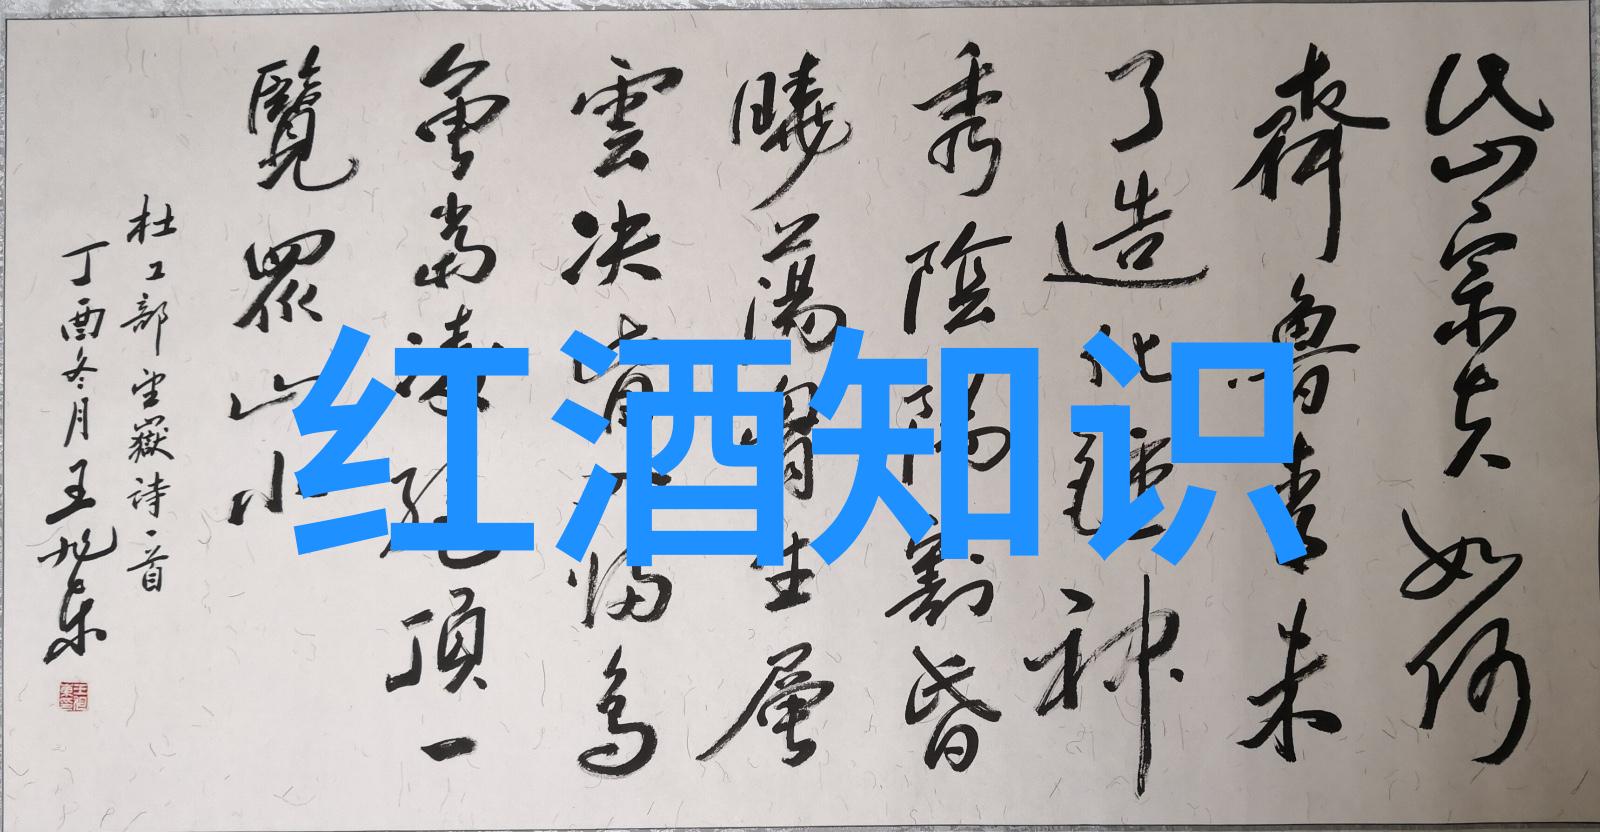 岱宗夫如何
齊魯青未
了造化鍾神
秀陰陽割昏
曉蕩胸生層
雲决眥入歸鳥
會當凌絕頂一
覽眾山小
杜工部望嶽詩一首
丁酉冬月王旭东
红酒知识